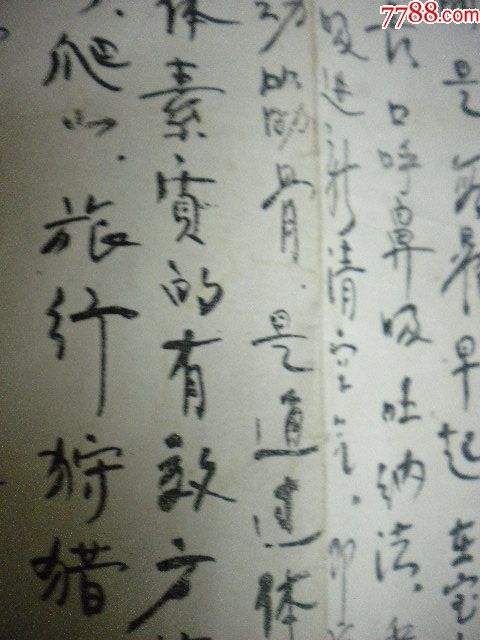 7788.com
早起在室
口呼鼻吸吐纳法.
吸进新清空气.即
筋骨.是 体
体素质的有效方
爬山.旅行狩猎